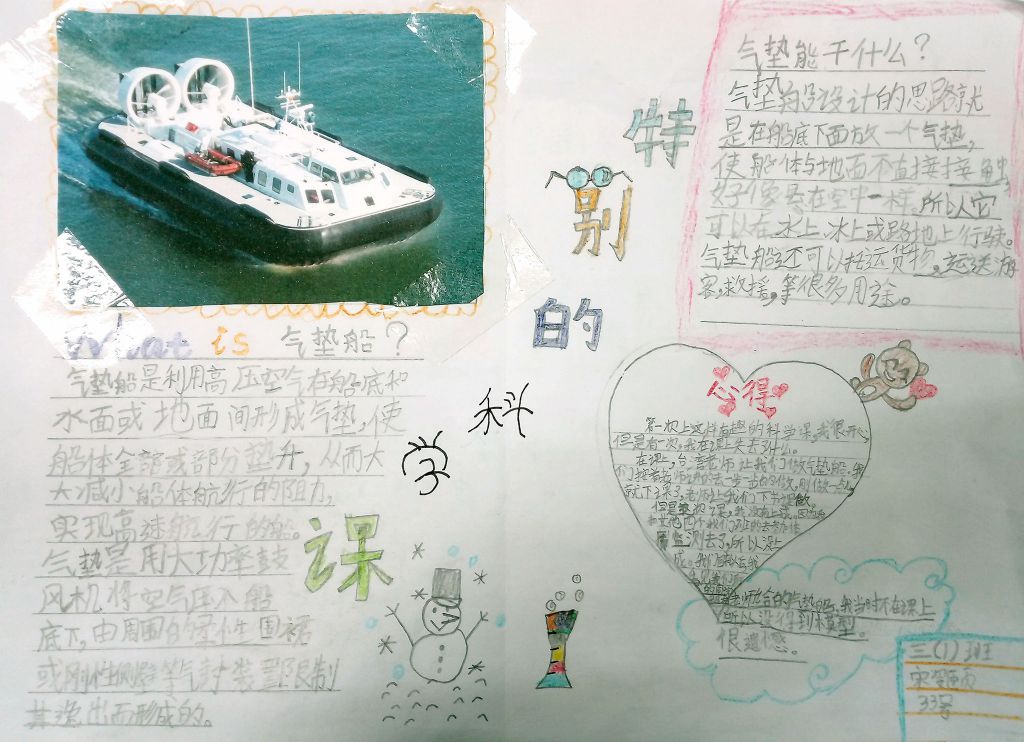 特别的科学课
What is 气垫船？
气垫船是利用高压空气在船底和
水面或地面间形成气垫，使
船体全部或部分垫升，从而大
大减小船体航行的阻力，
实现高速航行的船。
气垫是用大功率鼓
风机将空气压入船
底下，由周围的柔性围裙
或刚性侧壁等气封装置限制
其逸出而形成的。
气垫能干什么？
气垫船设计的思路就
是在船底下面放一个气垫，
使船体与地面不直接接触，
好像悬在空中一样，所以它
可以在水上、冰上或路地上行驶。
气垫船还可以托运货物，运送游
客，救援，等很多用途。
心得
第一次上这样有趣的科学课，我很开心，
但是有一次，我在课上失去了什么。
在课上，台老师让我们做气垫船，我
就下课了，老师让我们下午
所以没得到模型。
很遗憾。
三(1)班
33号